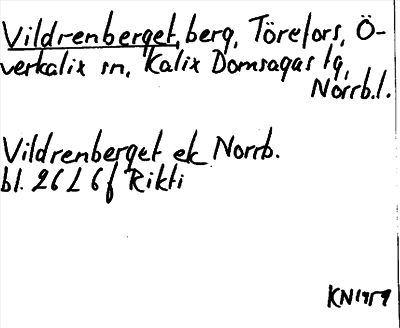 Vildrenberget, berg, Törefors, Ö-
verkalix sn, Kalix Domsagas tg,
Norrb.l.
Vildrenberget ek Norrb.
bl. 26 L 6f Rikti